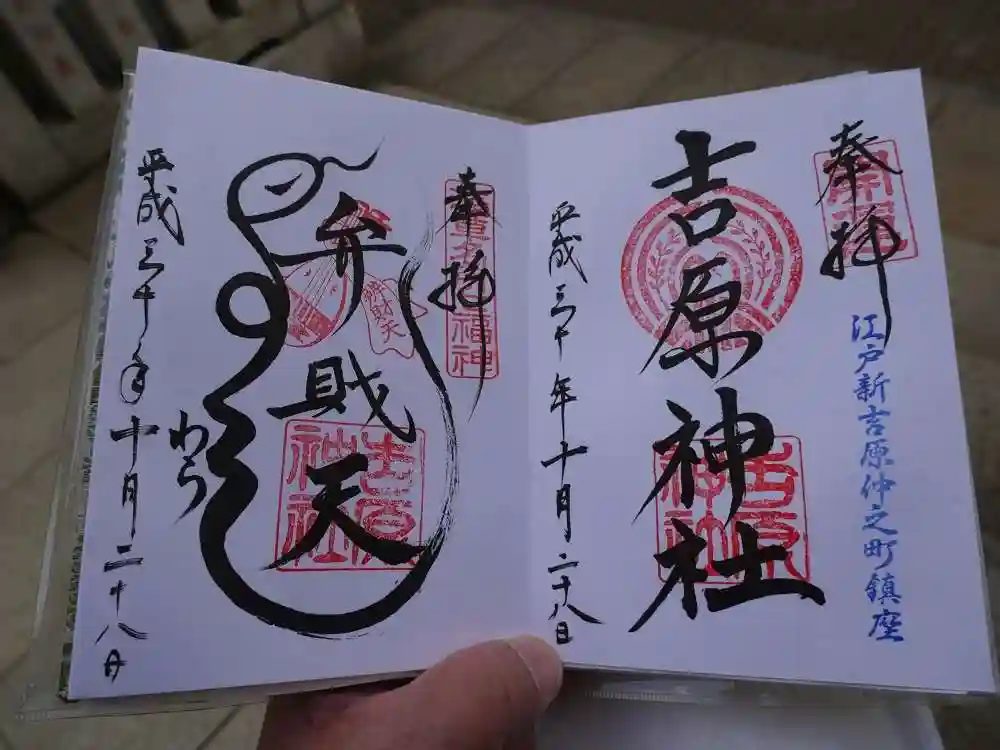 奉拝
江戸新吉原仲之町鎮座
吉原神社
吉原神社
平成三十年十月二十八日
奉拝
福神
弁財天
弁財天
吉原神社
わら
平成三十年十月二十八日